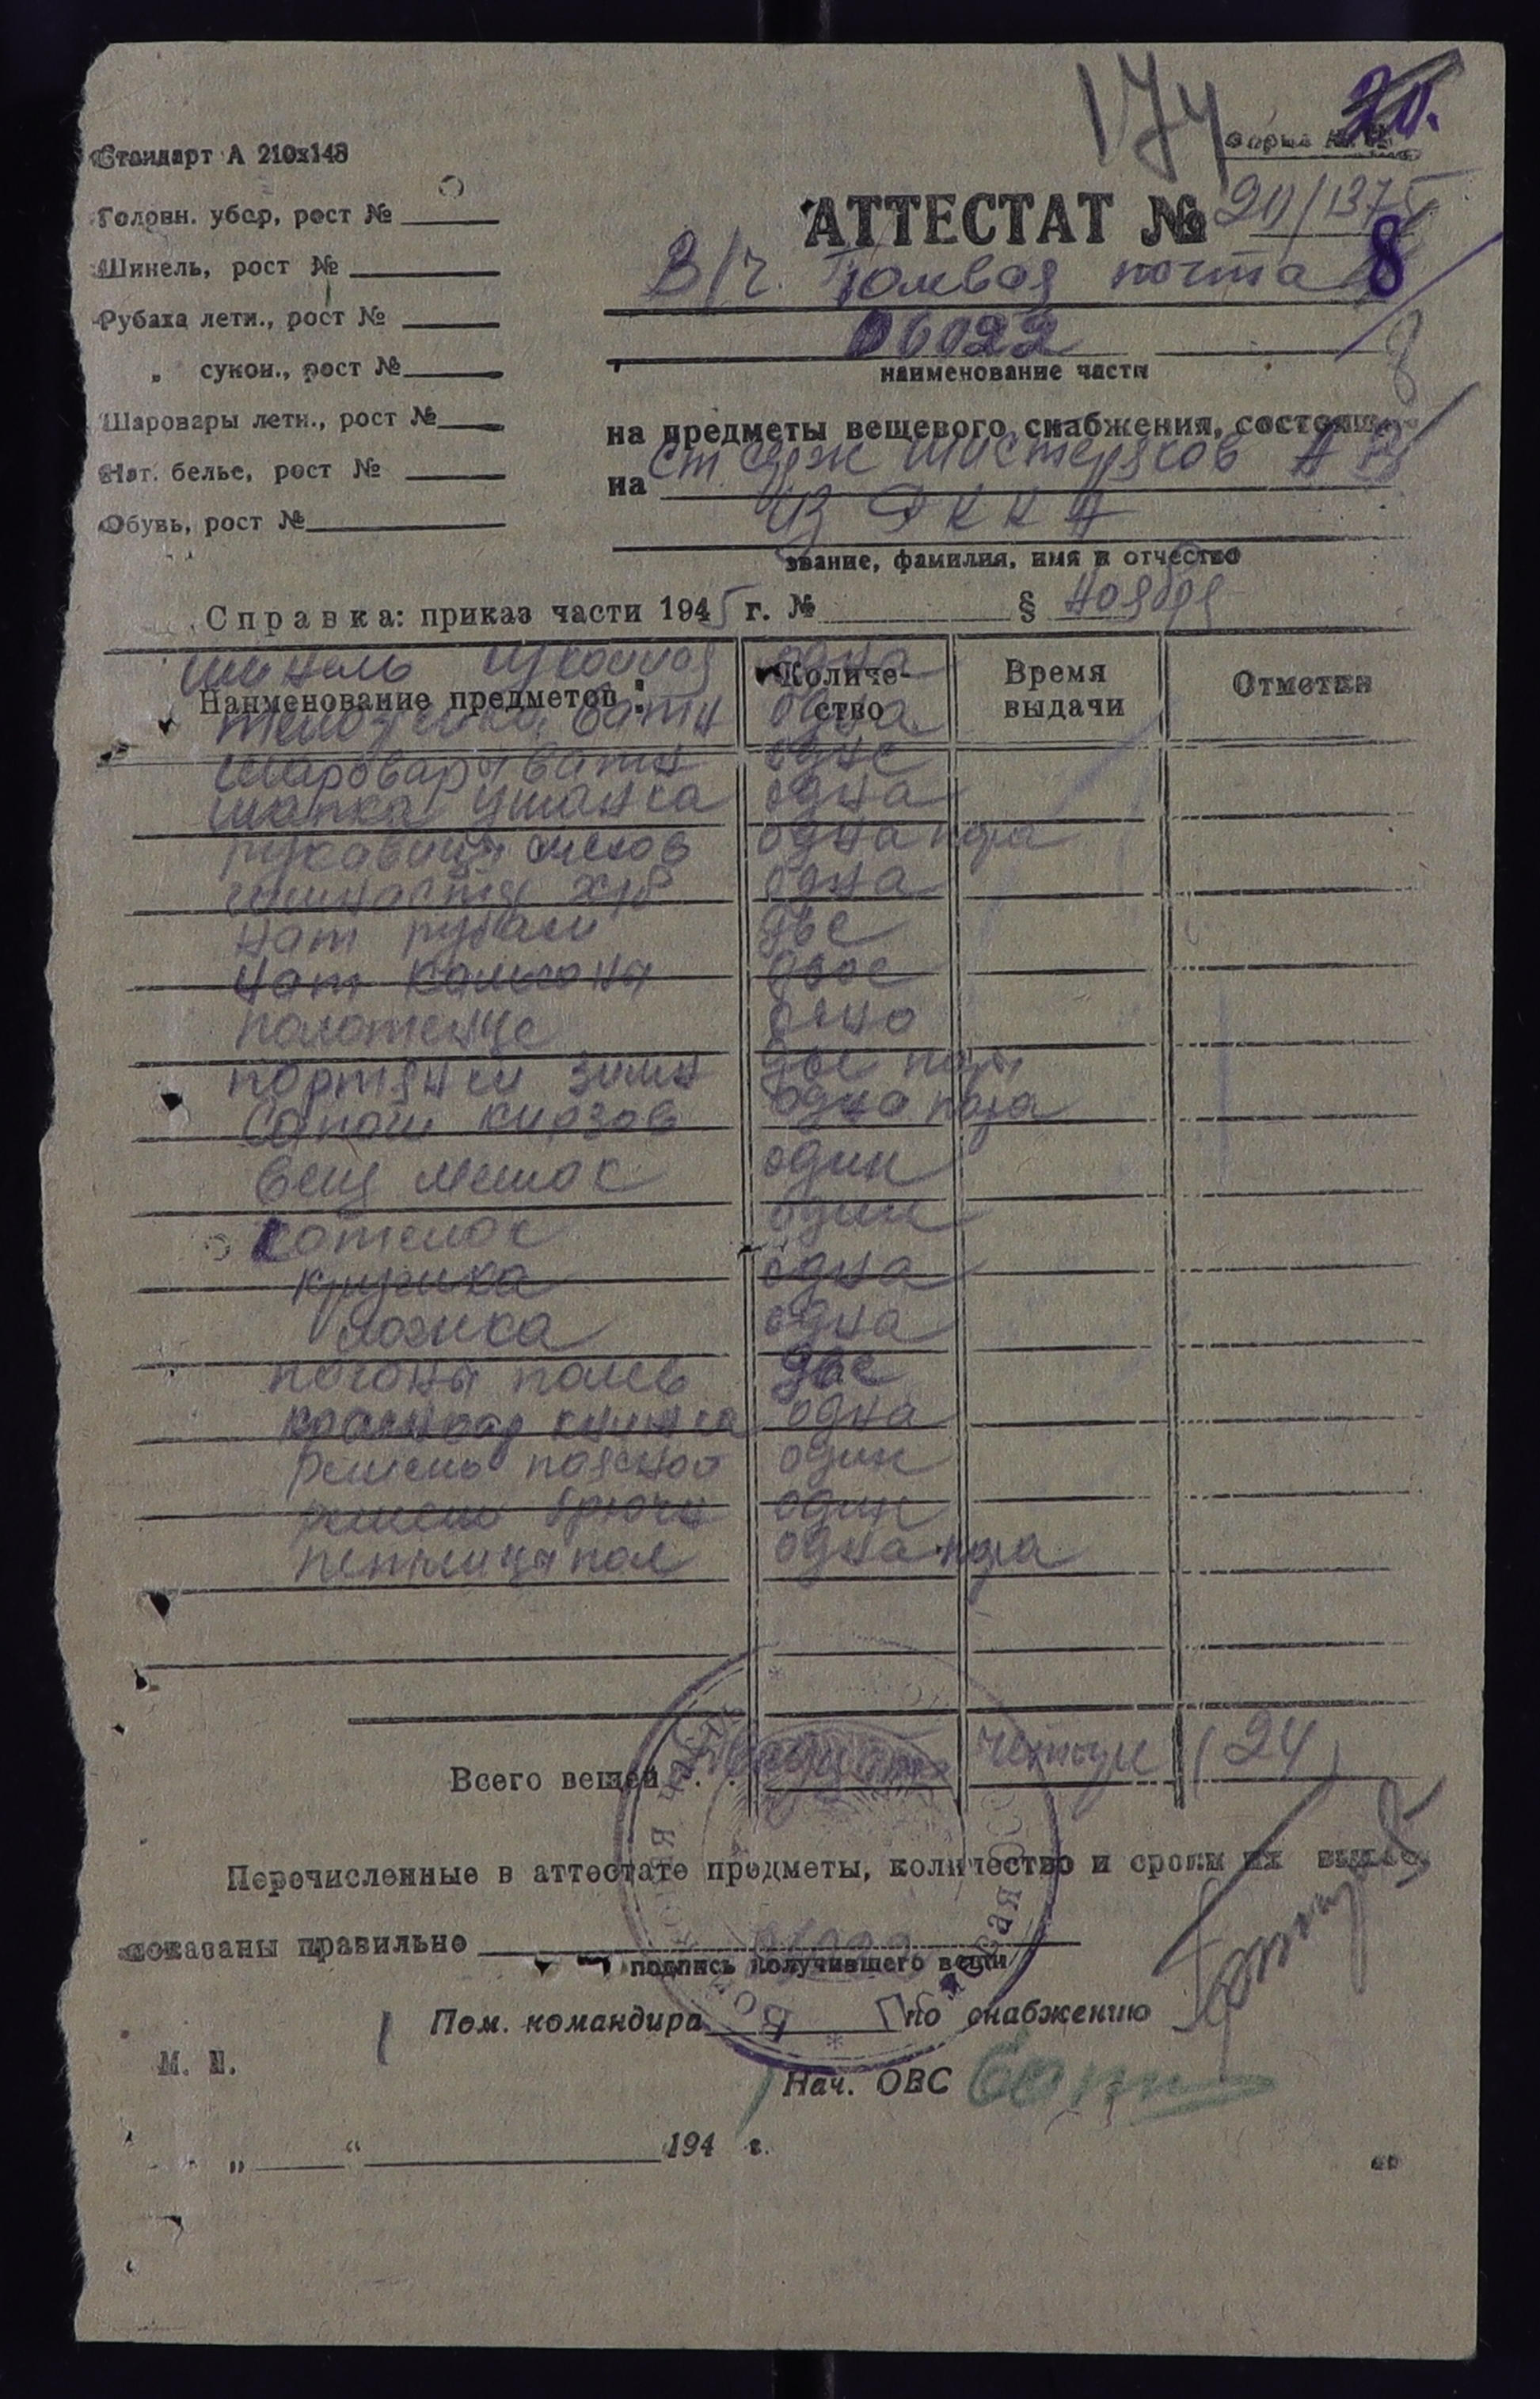 174
20.
Стандарт А 210х148
Форма №
Головн. убор, рост №
АТТЕСТАТ № 20/1375
8
Шинель, рост №
В/ч. Полевая почта
Рубаха летн., рост №
06022
8
„ сукон., рост №
наименование части
Шаровары летн., рост №
на предметы вещевого снабжения, состоящ
Нат. белье, рост №
на ст серж Шистеряков А
Обувь, рост №
из ЭККА
звание, фамилия, имя и отчество
Справка: приказ части 1945 г. № § ноября
шинель одна
Наименование предметов: Количество Время выдачи Отметки
телогрейка ватн одна
шаровары ватн одне
шапка ушанка одна
рукавицы мехов одна пара
гимнастер х/б одна
нат рубахи две
нат кальсоны двое
полотенце одно
портянки зимн две пары
Сапоги кирзов одна пара
вещ мешок один
котелок один
кружка одна
ложка одна
погоны полев две
красноар книжка одна
ремень поясной один
ремень брючн один
петлицы пол одна пара
Всего вещей . . . Двадцать четыре (24)
Перечисленные в аттестате предметы, количество и сроки их выдачи
показаны правильно
подпись получившего вещи
Пом. командира по снабжению
М. П.
Нач. ОВС
„ “ 194 г.